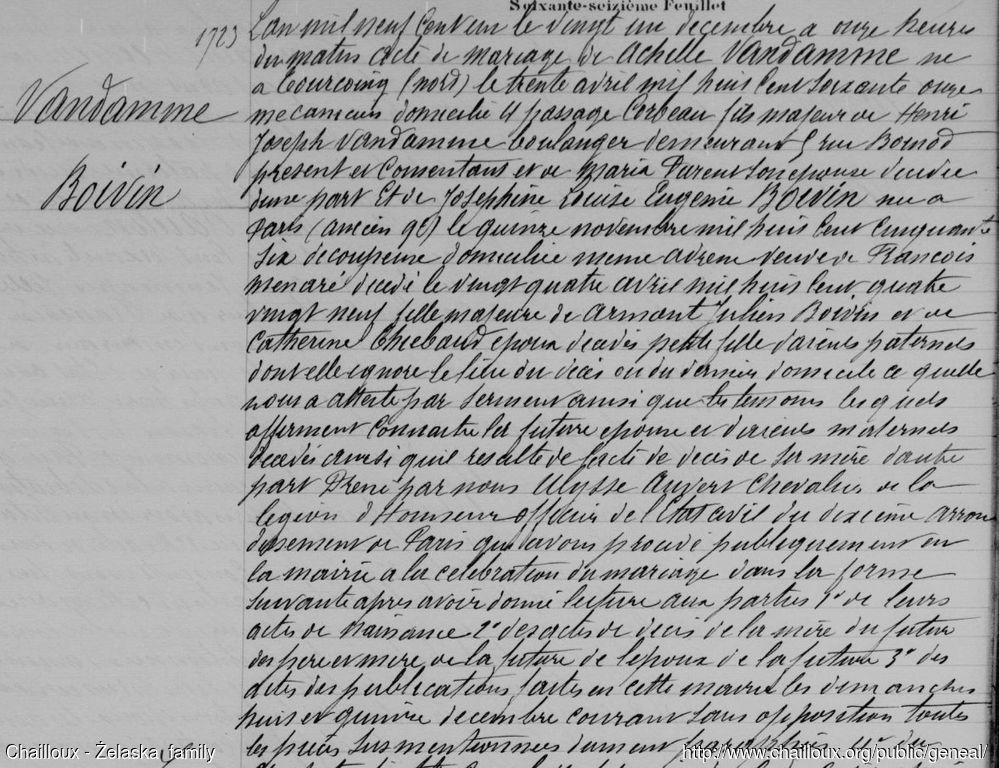 Soixante-seizième Feuillet
1723
Vandamme
Boivin
L'an mil neuf cent un le vingt un decembre a onze heures
du matin acte de mariage de Achille Vandamme né
a Tourcoing (nord) le trente avril mil huit cent soixante onze
mecanicien domicilié 4 passage Corbeau fils majeur de Henri
Joseph Vandamme boulanger demeurant 5 rue
present et consentant et de Maria Parent son epouse decedée
d'une part Et de Josephine Louise Eugenie Boivin née a
Paris (ancien 9e) le quinze novembre mil huit cent cinquante
six decoupeuse domiciliée meme adresse veuve de Francois
Menaré decedé le vingt quatre avril mil huit cent quatre
vingt neuf fille majeure de Armant Julien Boivin et de
Catherine Thiebaud epoux decedés petite fille d'aieuls paternels
dont elle ignore le lieu du deces ou du dernier domicile ce quelle
nous a attesté par serment ainsi que les temoins lesquels
affirment connaitre la future epouse et d'aieuls maternels
decedés ainsi quil resulte de l'acte de deces de sa mere d'autre
part Dressé par nous Ulysse Auvert Chevalier de la
legion d'Honneur officier de l'Etat civil du dixieme arron
dissement de Paris qui avons procedé publiquement en
la mairie a la celebration du mariage dans la forme
suivante apres avoir donné lecture aux parties 1° de leurs
actes de naissance 2° des actes de deces de la mere du futur
des pere et mere de la future de l'epoux de la future 3° des
actes des publications faites en cette mairie les dimanches
huit et quinze decembre courant sans opposition toutes
les pieces susmentionnées dument paraphées
Chailloux - Żelaska family
http://www.chailloux.org/public/geneal/